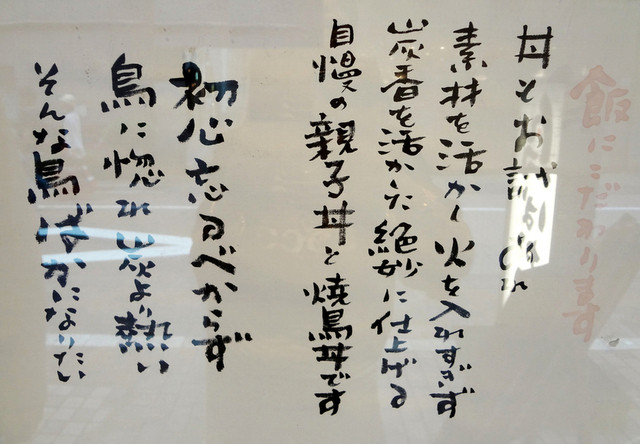 飯にこだわります
丼もお試し あれ
素材を活かし火を入れすぎず
炭香を活かた絶妙に仕上げる
自慢の親子丼と焼鳥丼です
初心忘るべからず
鳥に惚れ炭より熱い
そんな鳥ばかになりたい